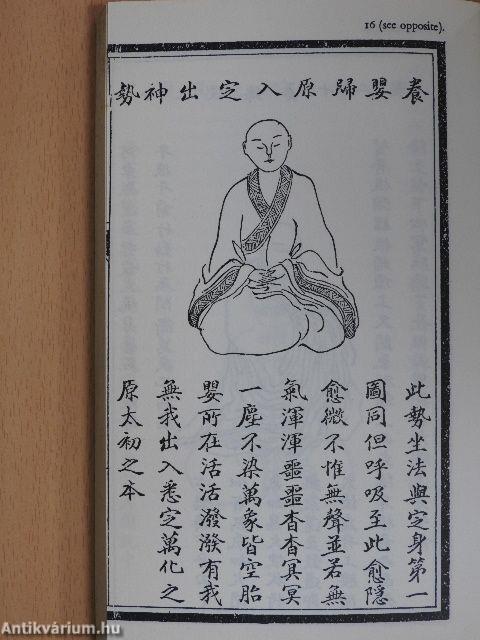 16 (see opposite).
養嬰歸原入定出神勢
此勢坐法與定身第一
圖同但呼吸至此愈隱
愈微不惟無聲並若無
氣渾渾噩噩杳杳冥冥
一塵不染萬象皆空胎
嬰所在活活潑潑有我
無我出入悉定萬化之
原太初之本
Antikvárium.hu